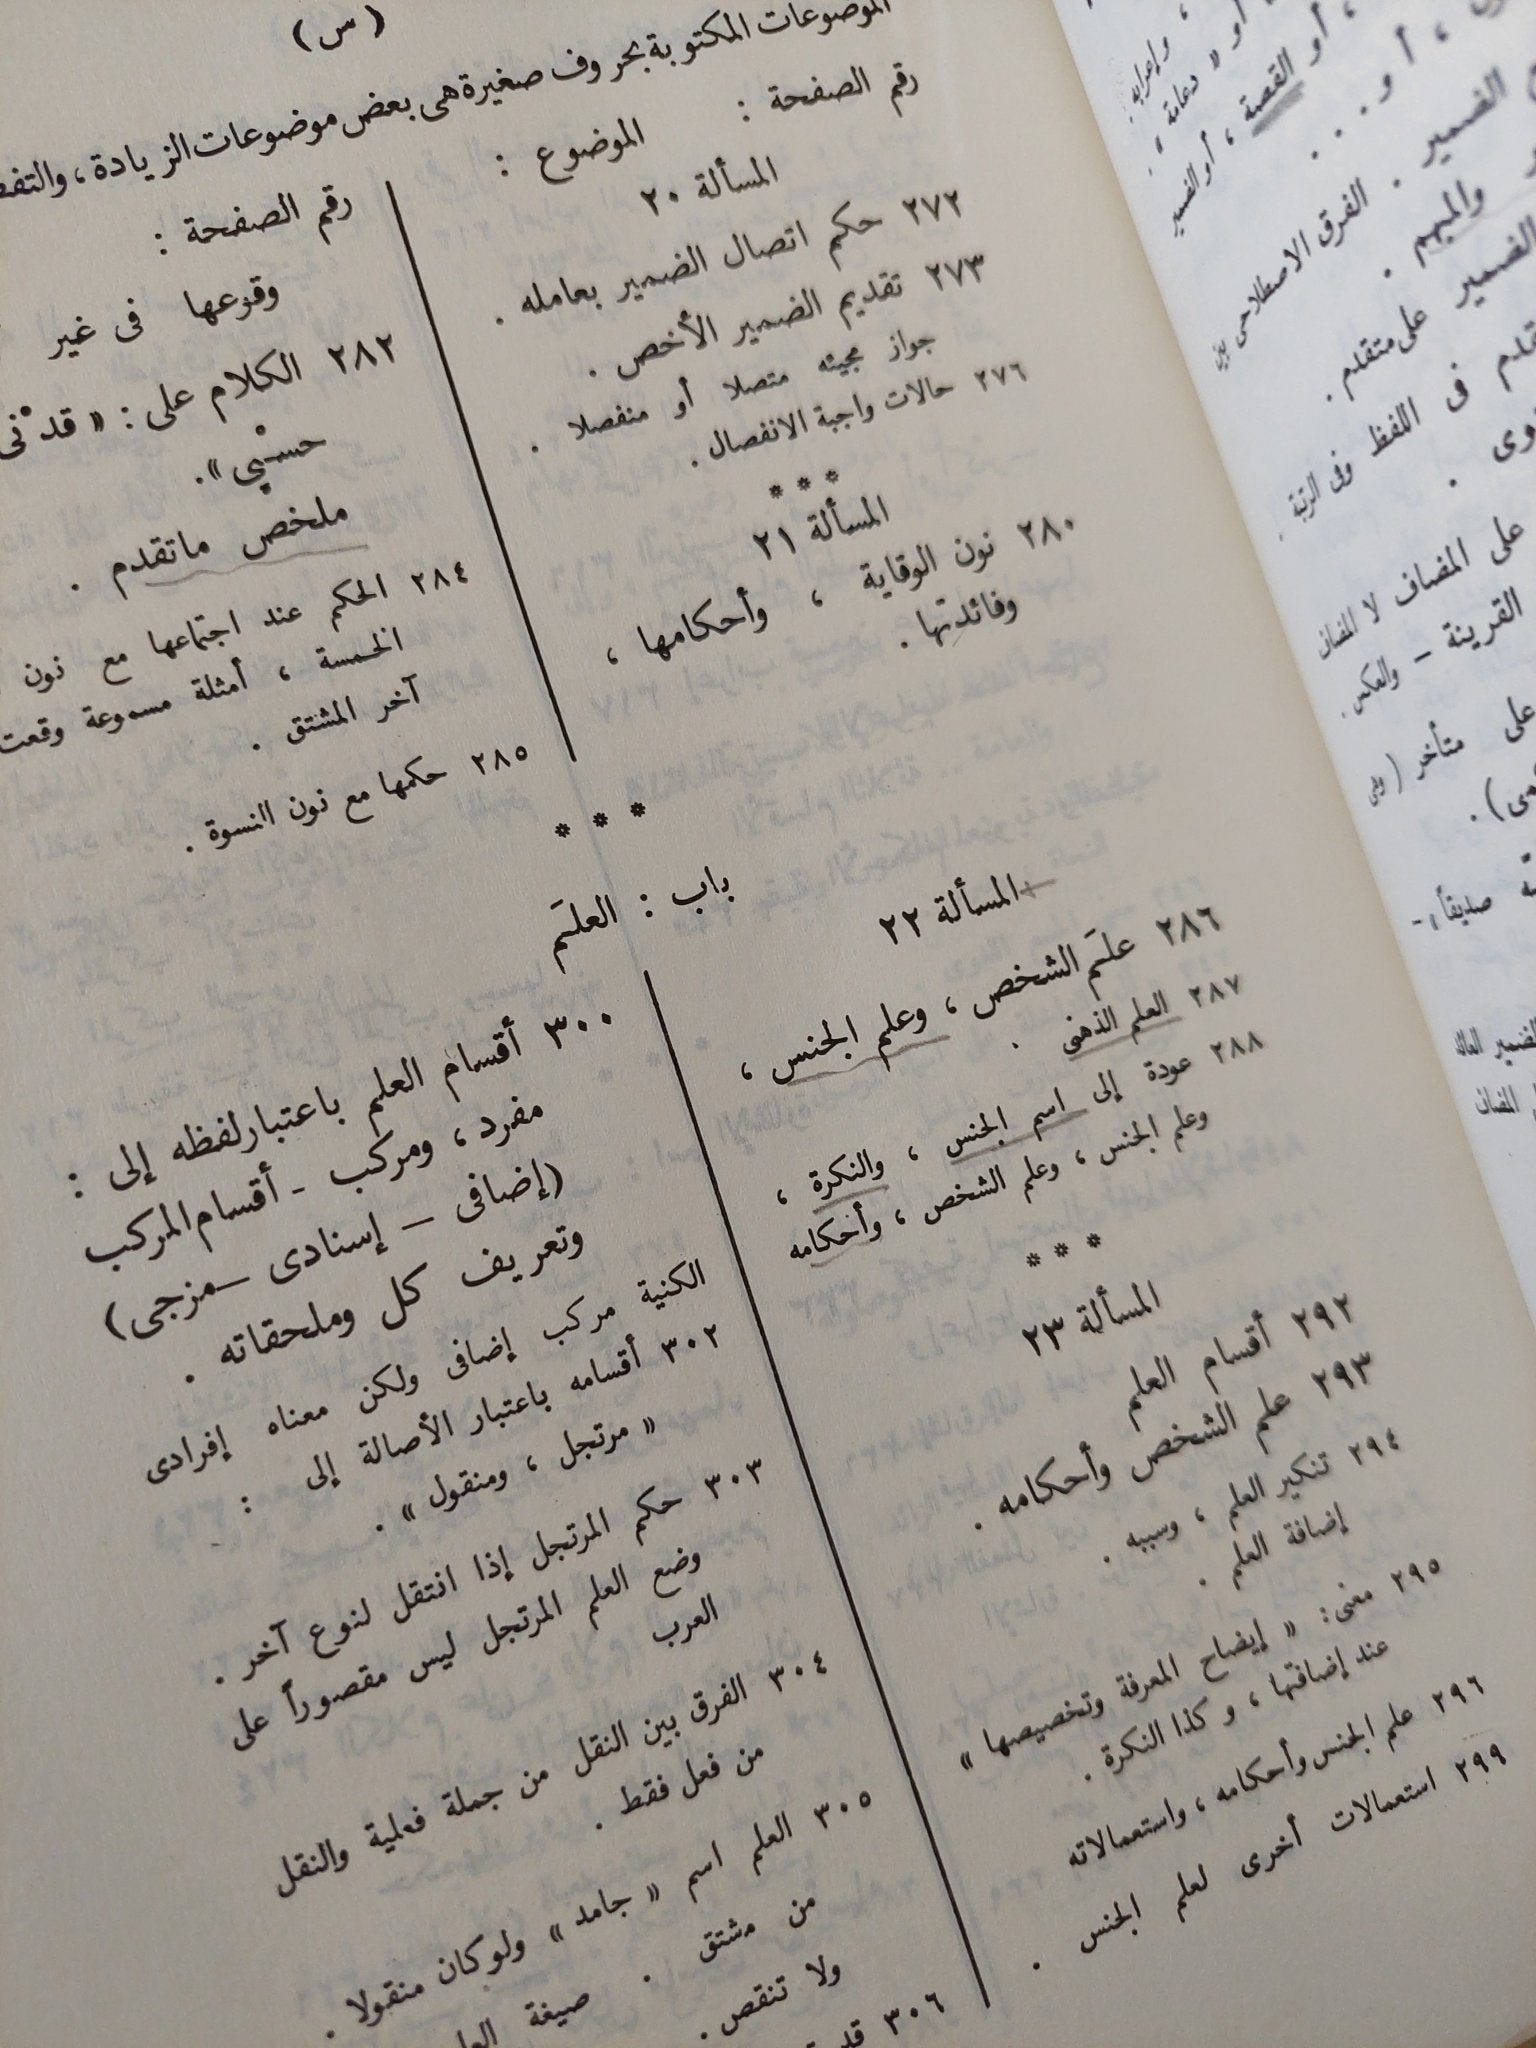 (س)
الموضوعات المكتوبة بحروف صغيرة هى بعض موضوعات الزيادة ، والتفصيل
رقم الصفحة : الموضوع :
المسألة ٢٠
٢٧٢ حكم اتصال الضمير بعامله .
٢٧٣ تقديم الضمير الأخص .
جواز مجيئه متصلا أو منفصلا .
٢٧٦ حالات واجبة الانفصال .
* * *
المسألة ٢١
٢٨٠ نون الوقاية ، وأحكامها ،
وفائدتها .
رقم الصفحة :
وقوعها فى غير
٢٨٢ الكلام على : « قدْنى
حسْبِي » .
ملخص ماتقدم .
٢٨٤ الحكم عند اجتماعها مع نون
الخمسة ، أمثلة مسموعة وقعت
آخر المشتق .
٢٨٥ حكمها مع نون النسوة .
* * *
باب : العلَم
المسألة ٢٢
٢٨٦ علَم الشخص ، وعلم الجنس ،
٢٨٧ العلم الذهنى .
٢٨٨ عودة إلى اسم الجنس ، والنكرة ،
وعلم الجنس ، وعلم الشخص ، وأحكامه
* * *
المسألة ٢٣
٢٩٢ أقسام العلم
٢٩٣ علم الشخص وأحكامه .
٢٩٤ تنكير العلم ، وسببه .
إضافة العلم .
٢٩٥ معنى : « إيضاح المعرفة وتخصيصها »
عند إضافتها ، وكذا النكرة .
٢٩٦ علم الجنس وأحكامه ، واستعمالاته
٢٩٩ استعمالات أخرى لعلم الجنس .
٣٠٠ أقسام العلم باعتبار لفظه إلى :
مفرد ، ومركب - أقسام المركب
(إضافى – إسنادى – مزجى)
وتعريف كل وملحقاته .
الكنية مركب إضافى ولكن معناه إفرادى
٣٠٢ أقسامه باعتبار الأصالة إلى :
« مرتجل ، ومنقول » .
٣٠٣ حكم المرتجل إذا انتقل لنوع آخر .
وضع العلم المرتجل ليس مقصوراً على
العرب
٣٠٤ الفرق بين النقل من جملة فعلية والنقل
من فعل فقط .
٣٠٥ العلم اسم « جامد » ولو كان منقولا .
من مشتق . صيغة العلم
ولا تنقص .
٣٠٦
، وإعرابه .
أو « دعامة » .
، أو القصة ، أو الضمير
، أو . . .
الضمير . الفرق الاصطلاحى بين
والمبهم .
الضمير على متقدم .
فى اللفظ وفى الرتبة .
على المضاف لا المضاف
القرينة – والعكس .
على متأخر (وهى
صديقاً ، -
المضاف